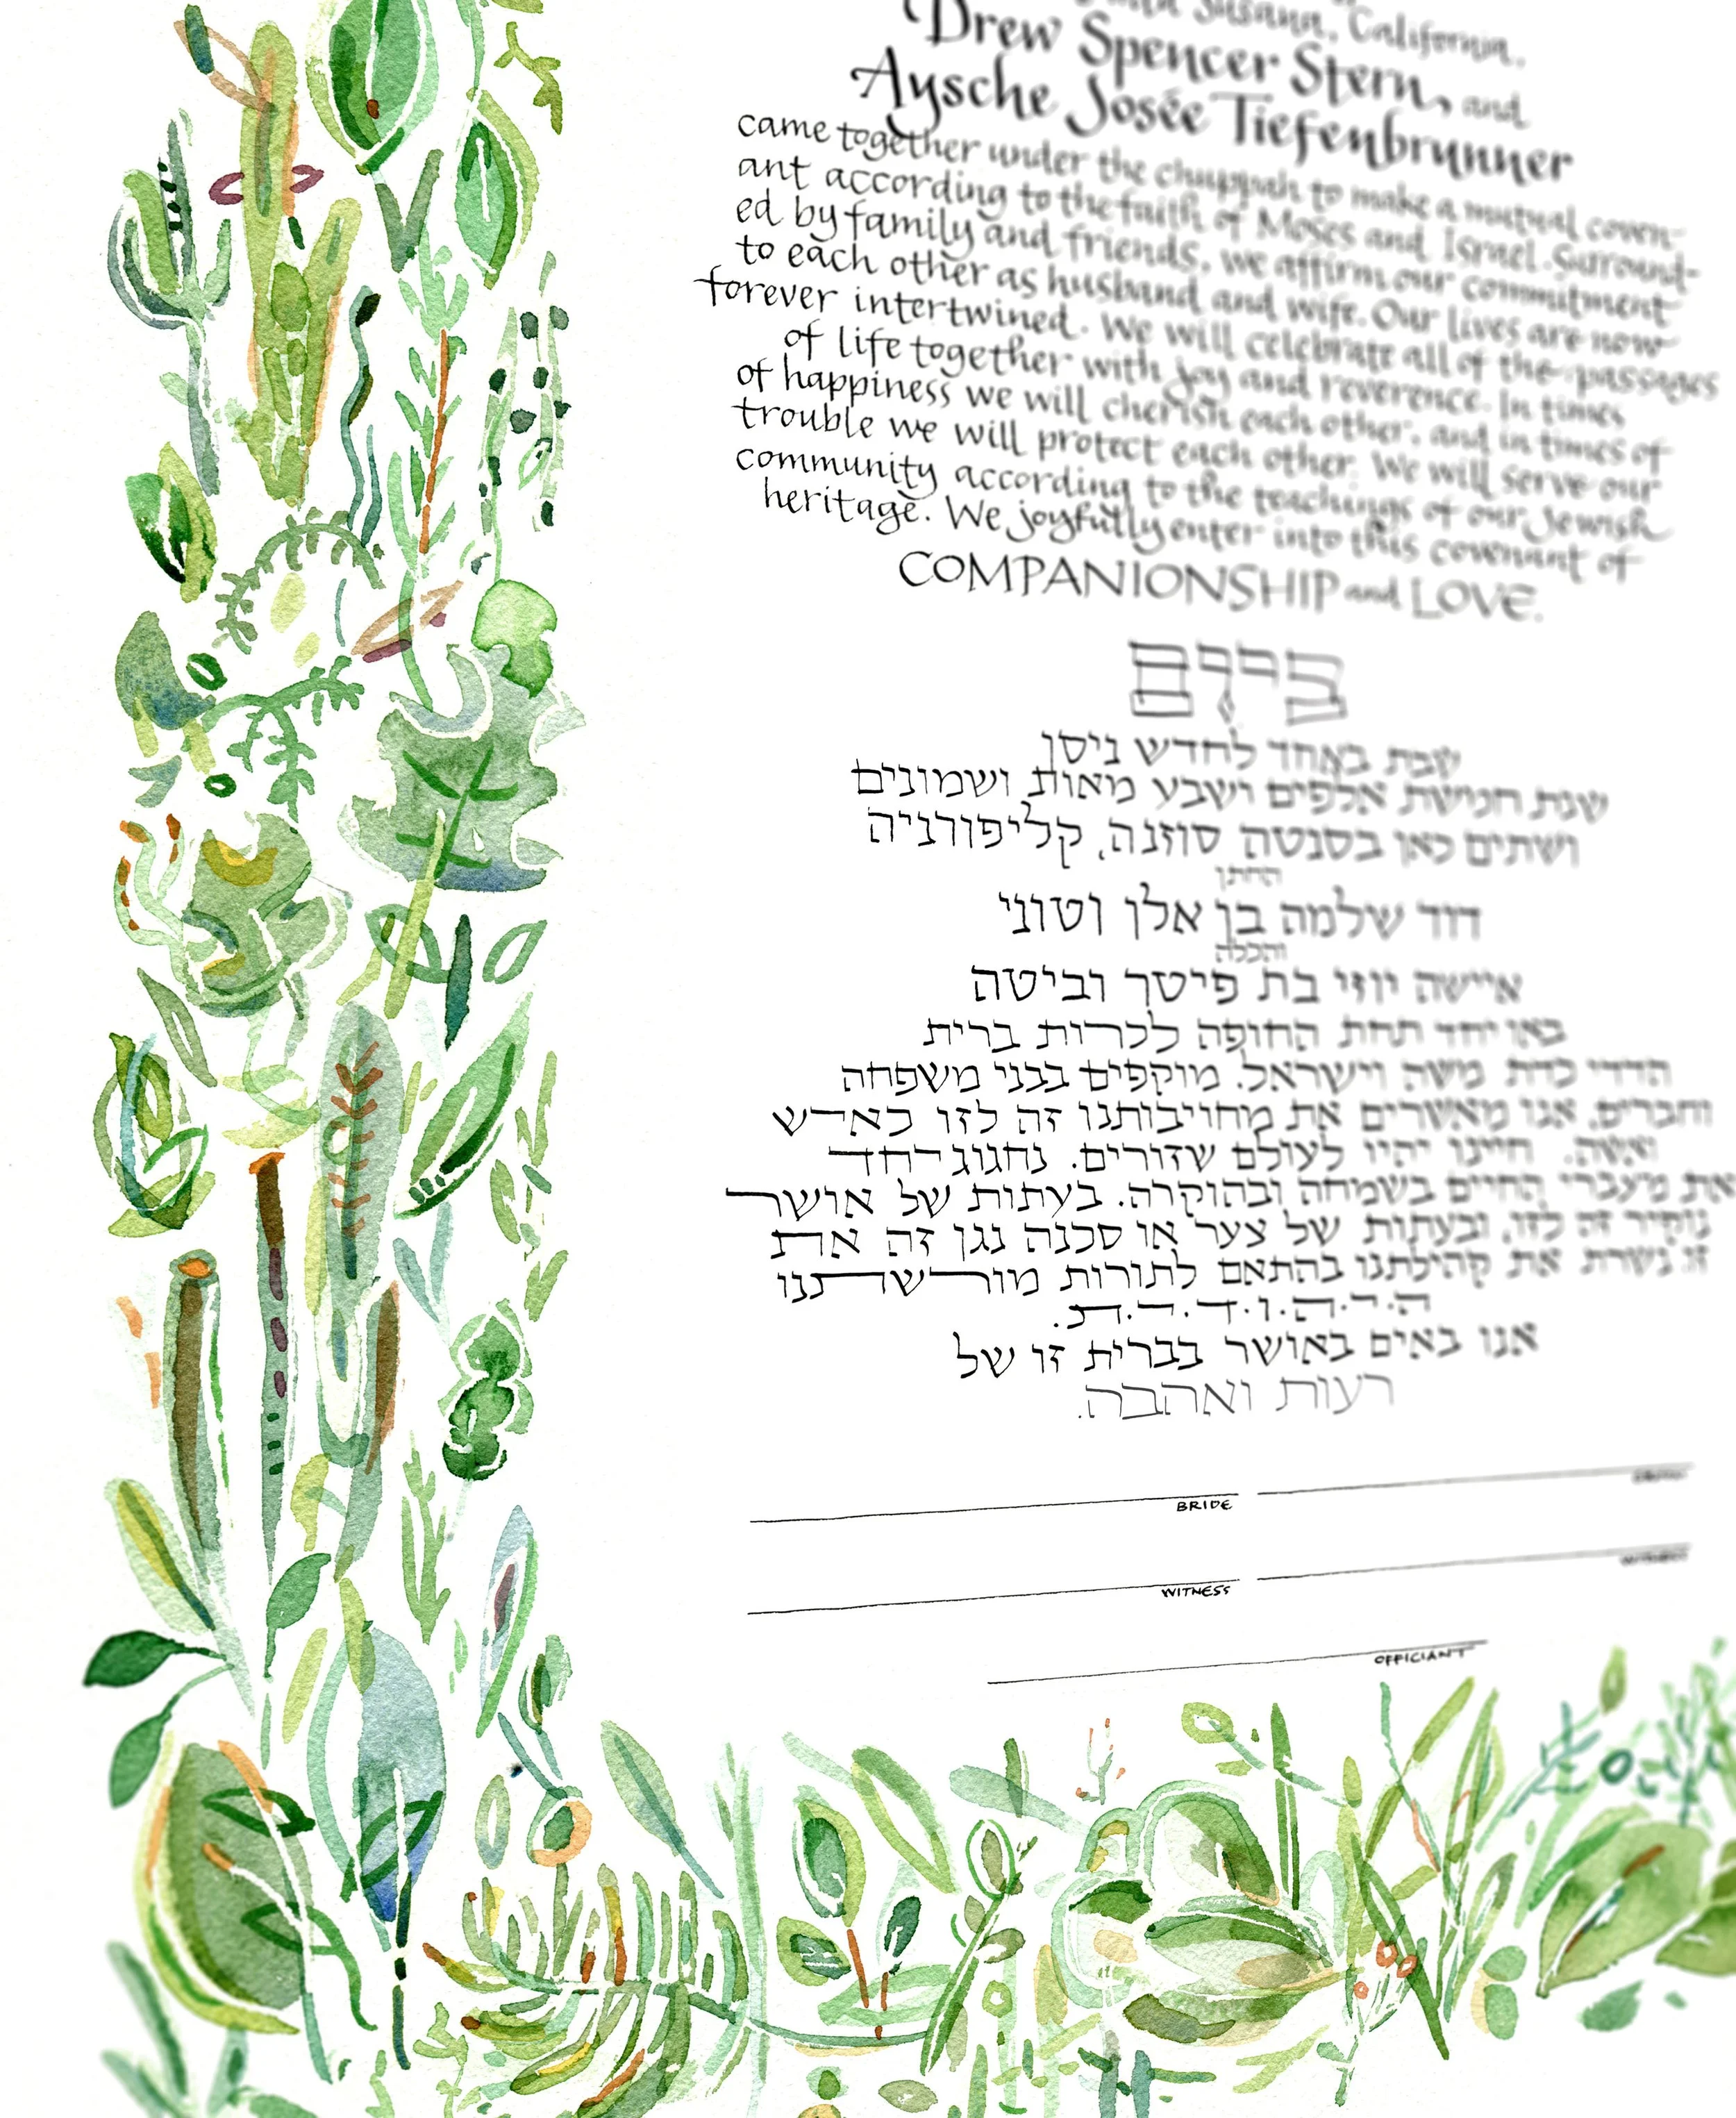 Susana, California,
Drew Spencer Stern, and
Aysche Josée Tiefenbrunner
came together under the chuppah to make a mutual coven-
ant according to the faith of Moses and Israel. Surround-
ed by family and friends, we affirm our commitment
to each other as husband and wife. Our lives are now
forever intertwined. We will celebrate all of the passages
of life together with joy and reverence. In times
of happiness we will cherish each other, and in times of
trouble we will protect each other. We will serve our
community according to the teachings of our Jewish
heritage. We joyfully enter into this covenant of
COMPANIONSHIP and LOVE.
ביום
שבת באחד לחדש ניסן
שנת חמישת אלפים ושבע מאות ושמונים
ושתים כאן בסנטה סוזנה, קליפורניה
החתן
דוד שלמה בן אלן וטוני
והכלה
איישה יוזי בת פיטר וביטה
באו יחד תחת החופה לכרות ברית
הדדי כדת משה וישראל. מוקפים בבני משפחה
וחברים, אנו מאשרים את מחויבותנו זה לזו כאיש
ואשה. חיינו יהיו לעולם שזורים. נחגוג יחד
את מעברי החיים בשמחה ובהוקרה. בעתות של אושר
נוקיר זה לזו, ובעתות של צער או סכנה נגן זה את
זו נשרת את קהילתנו בהתאם לתורות מורשתנו
ה.י.ה.ו.ד.י.ת.
אנו באים באושר בברית זו של
רעות ואהבה.
BRIDE GROOM
WITNESS WITNESS
OFFICIANT